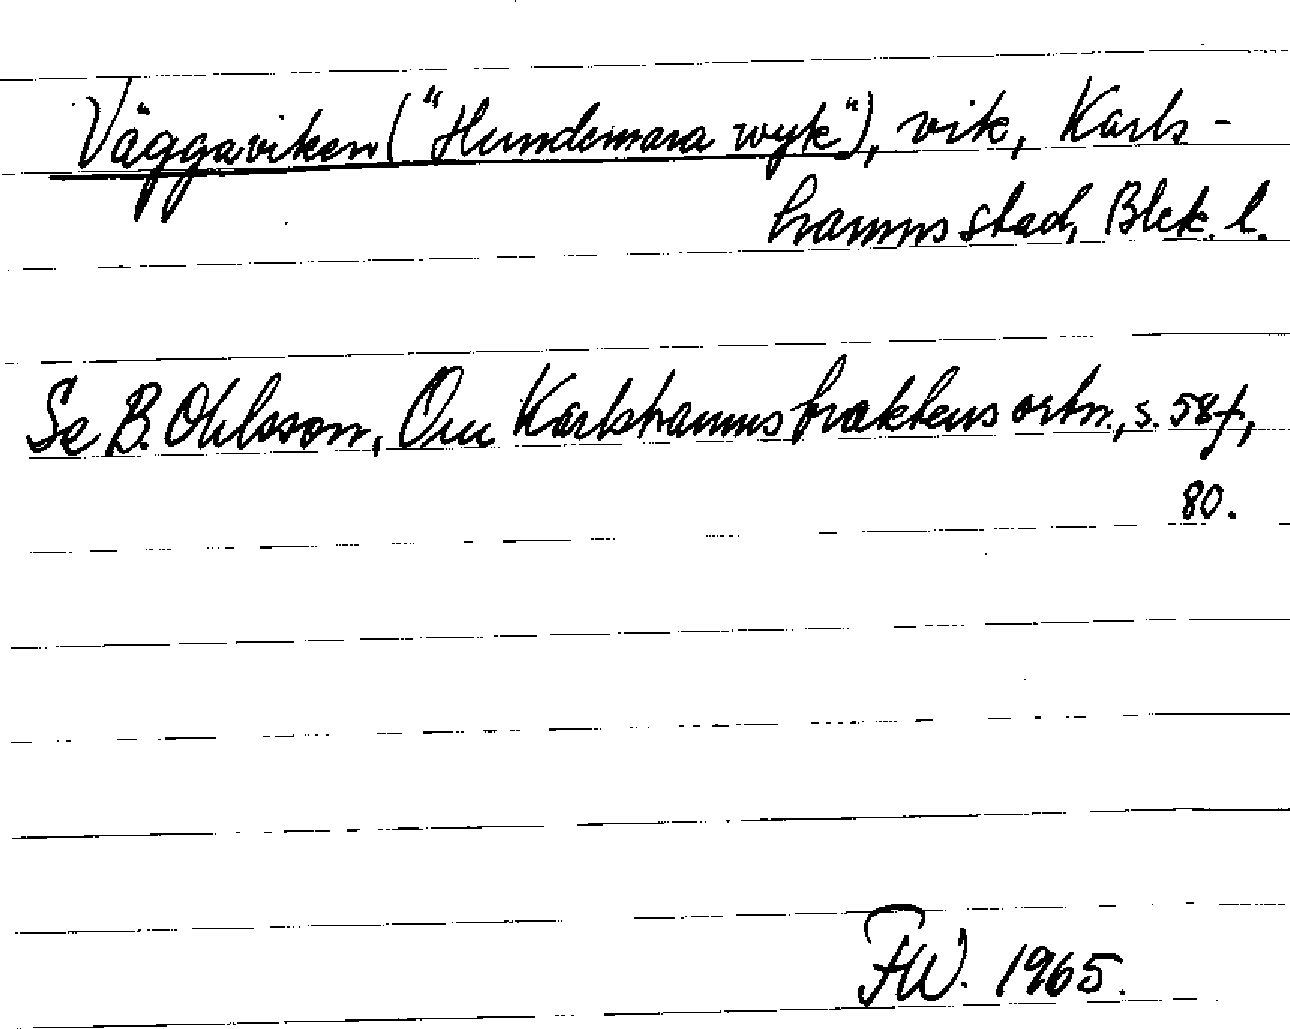 Väggaviken ("Hundemara wyk"), vik, Karls-
hamns stad, Blek. l.
Se B. Ohlsson, Om Karlshamnstraktens ortn., s. 58f,
80.
FW. 1965.